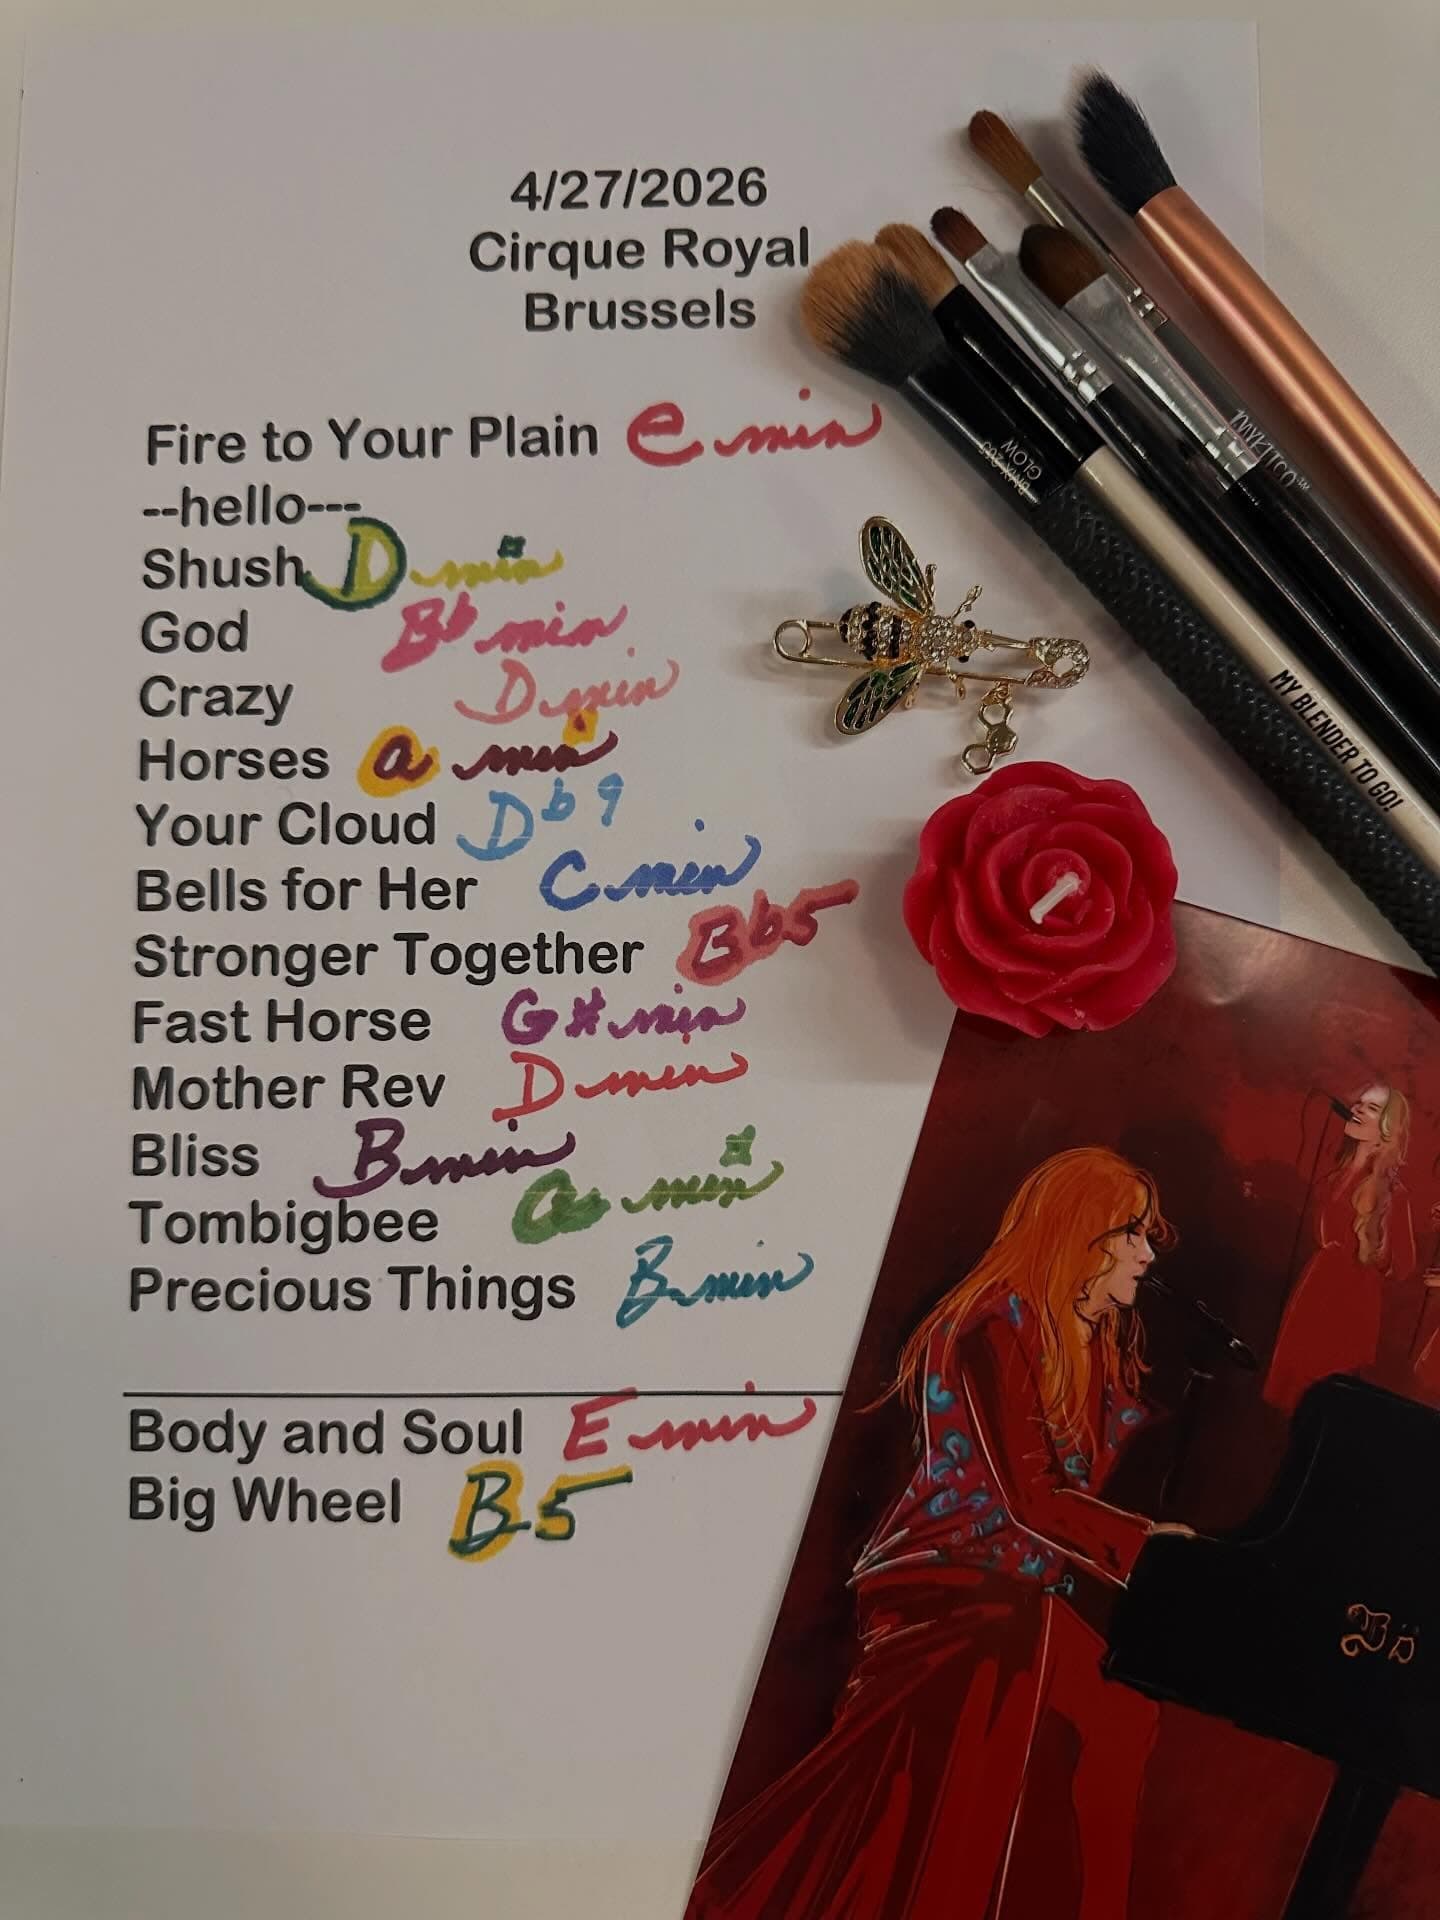 4/27/2026
Cirque Royal
Brussels
Fire to Your Plain e min
--hello---
Shush D min
God Bb min
Crazy D min
Horses a min
Your Cloud Db9
Bells for Her C min
Stronger Together Bb5
Fast Horse G# min
Mother Rev D min
Bliss B min
Tombigbee a min
Precious Things B min
Body and Soul E min
Big Wheel B5
GLOW
MYKITCO
MY BLENDER TO GO!
Bö